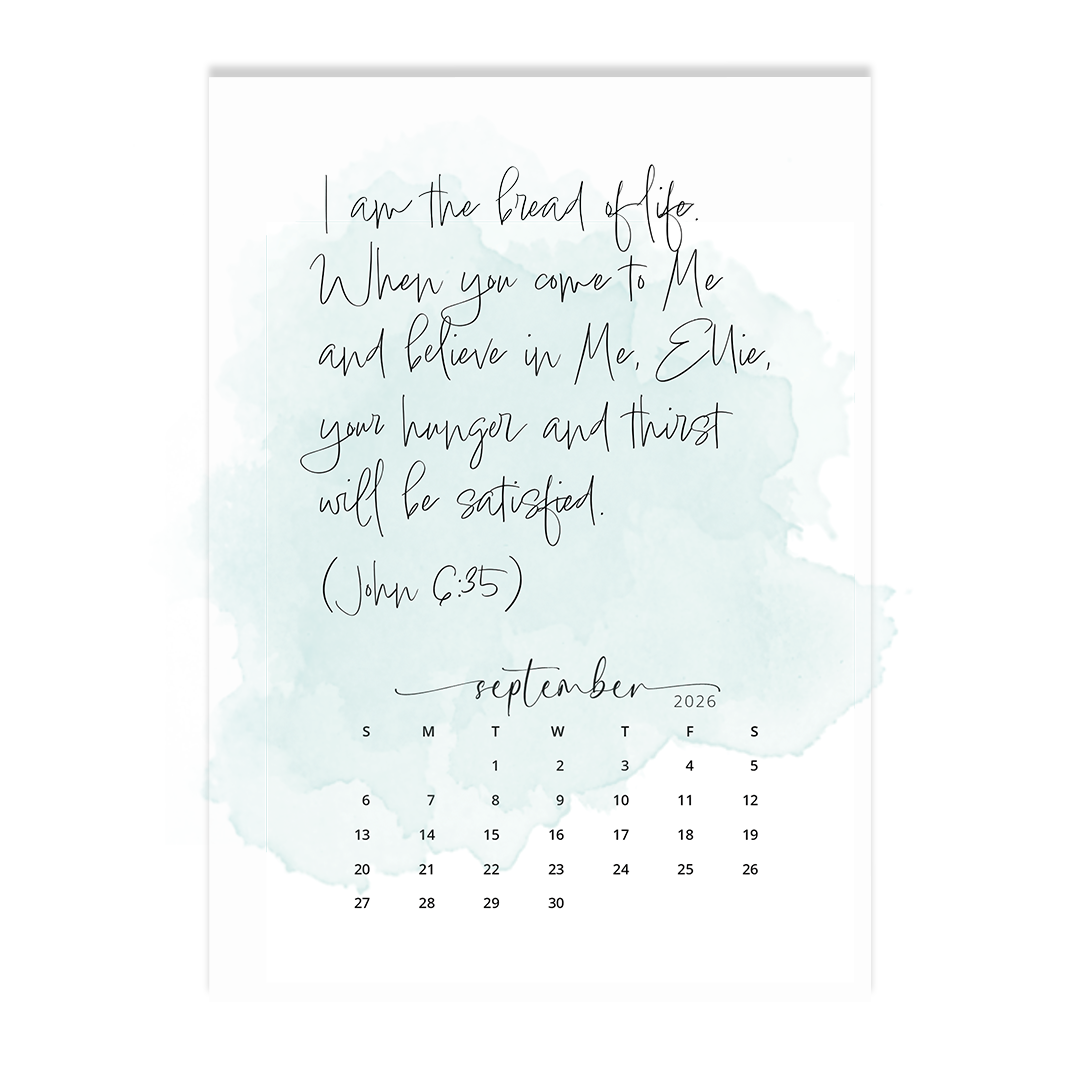 I am the bread of life.
When you come to Me
and believe in Me, Ellie,
your hunger and thirst
will be satisfied.
(John 6:35)
september 2026
S M T W T F S
1 2 3 4 5
6 7 8 9 10 11 12
13 14 15 16 17 18 19
20 21 22 23 24 25 26
27 28 29 30